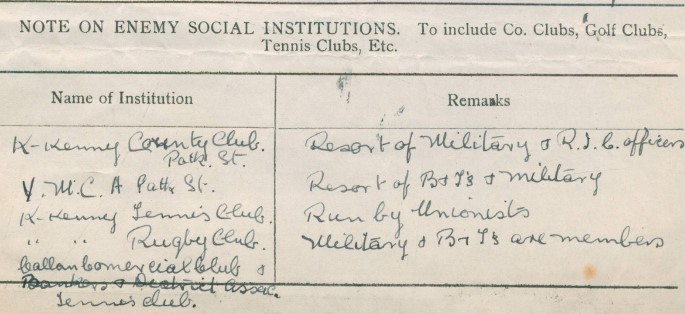 NOTE ON ENEMY SOCIAL INSTITUTIONS. To include Co. Clubs, Golf Clubs,
Tennis Clubs, Etc.
Name of Institution Remarks
K-Kenny County Club. Resort of Military & R.I.C. officers
Patk. St.
Y. M.C. A Patk St. Resort of B & T's & military
K-Kenny Tennis Club. Run by Unionists
" " Rugby Club. Military & B & T's are members
Callan Comercial Club &
Bankers & District Assoc.
Tennis club.